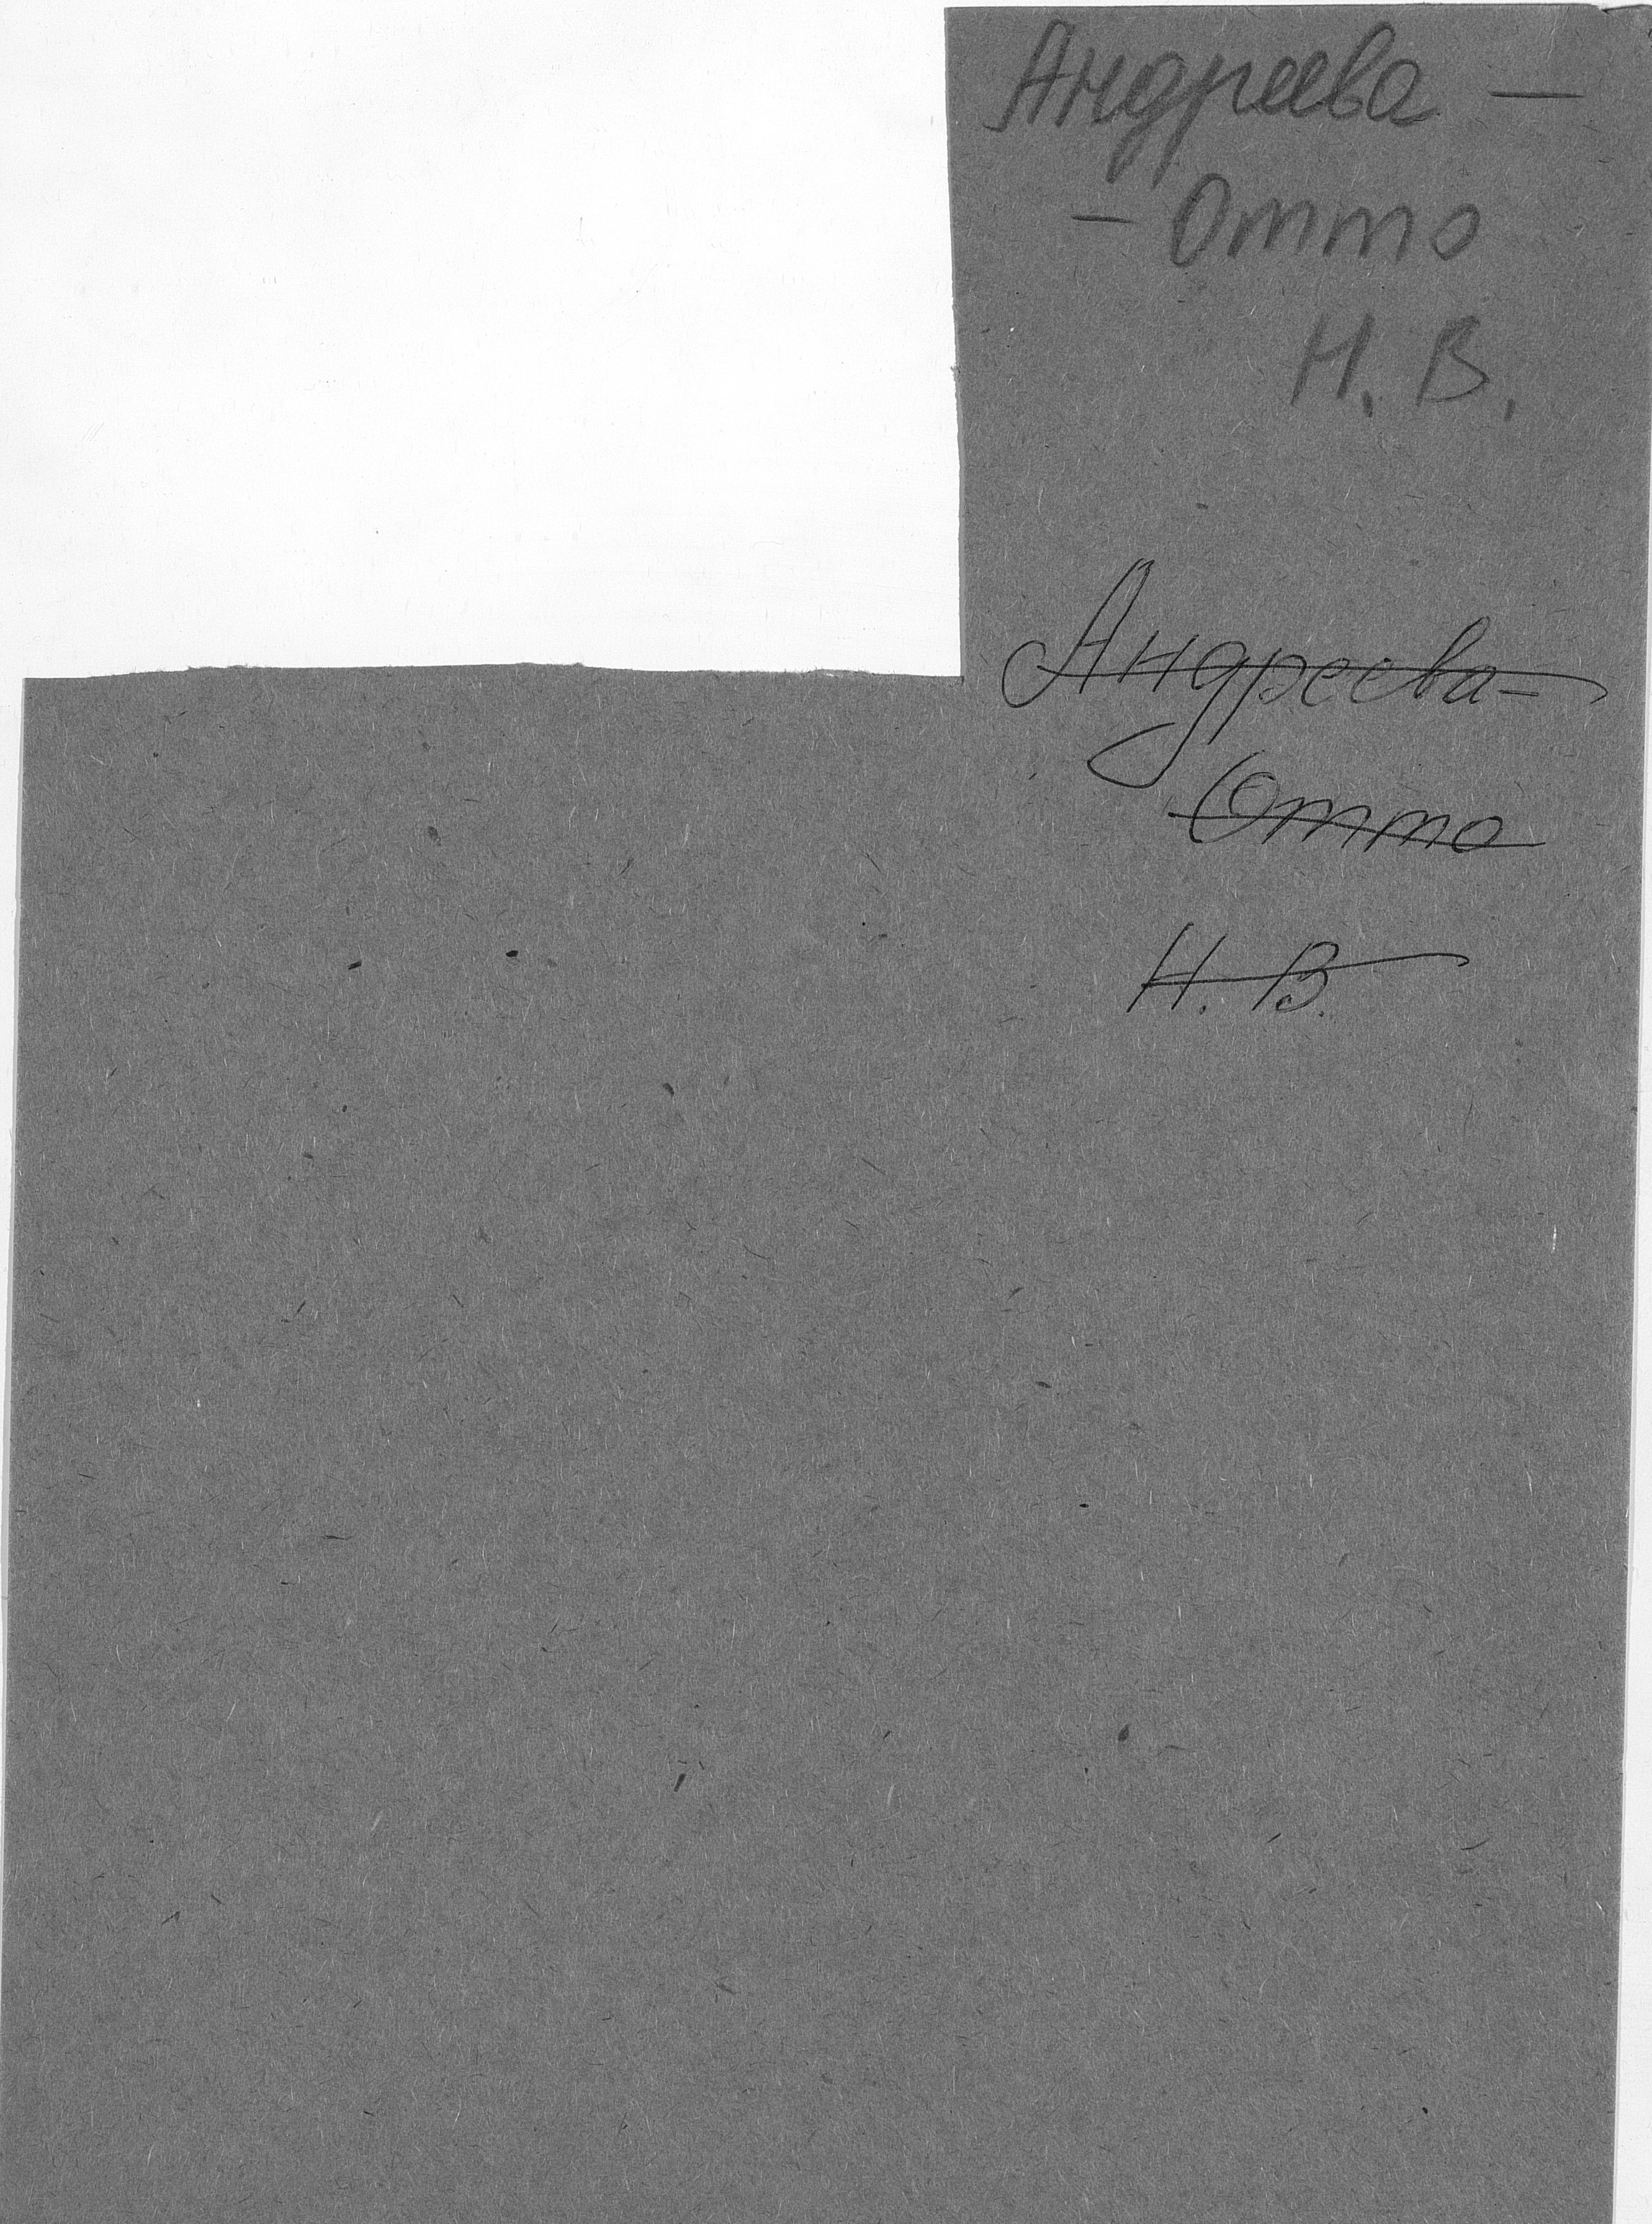 Андреева —
— Отто
Н. В.
Андреева-
Отто
Н. В.